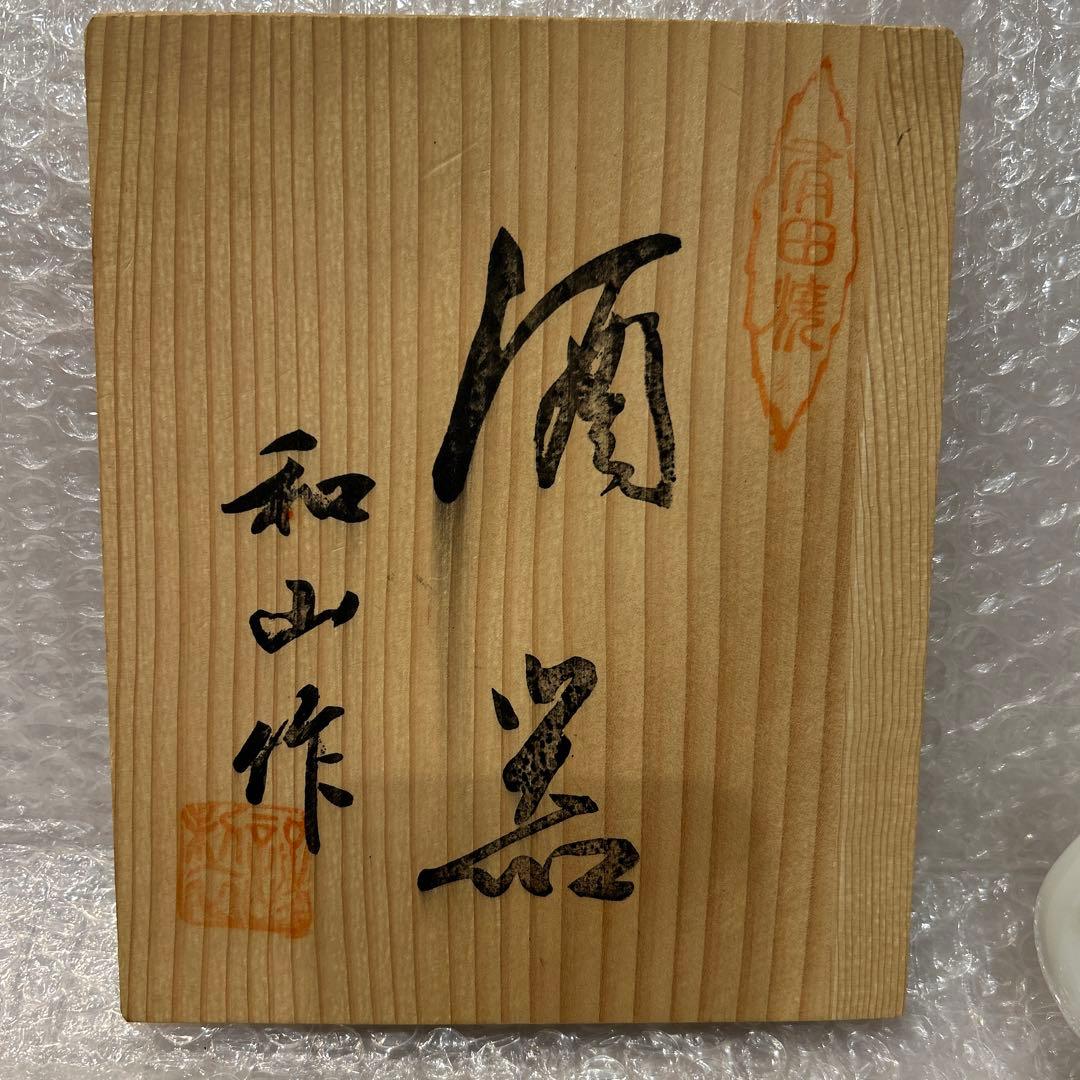 有田焼
酒器
和山作